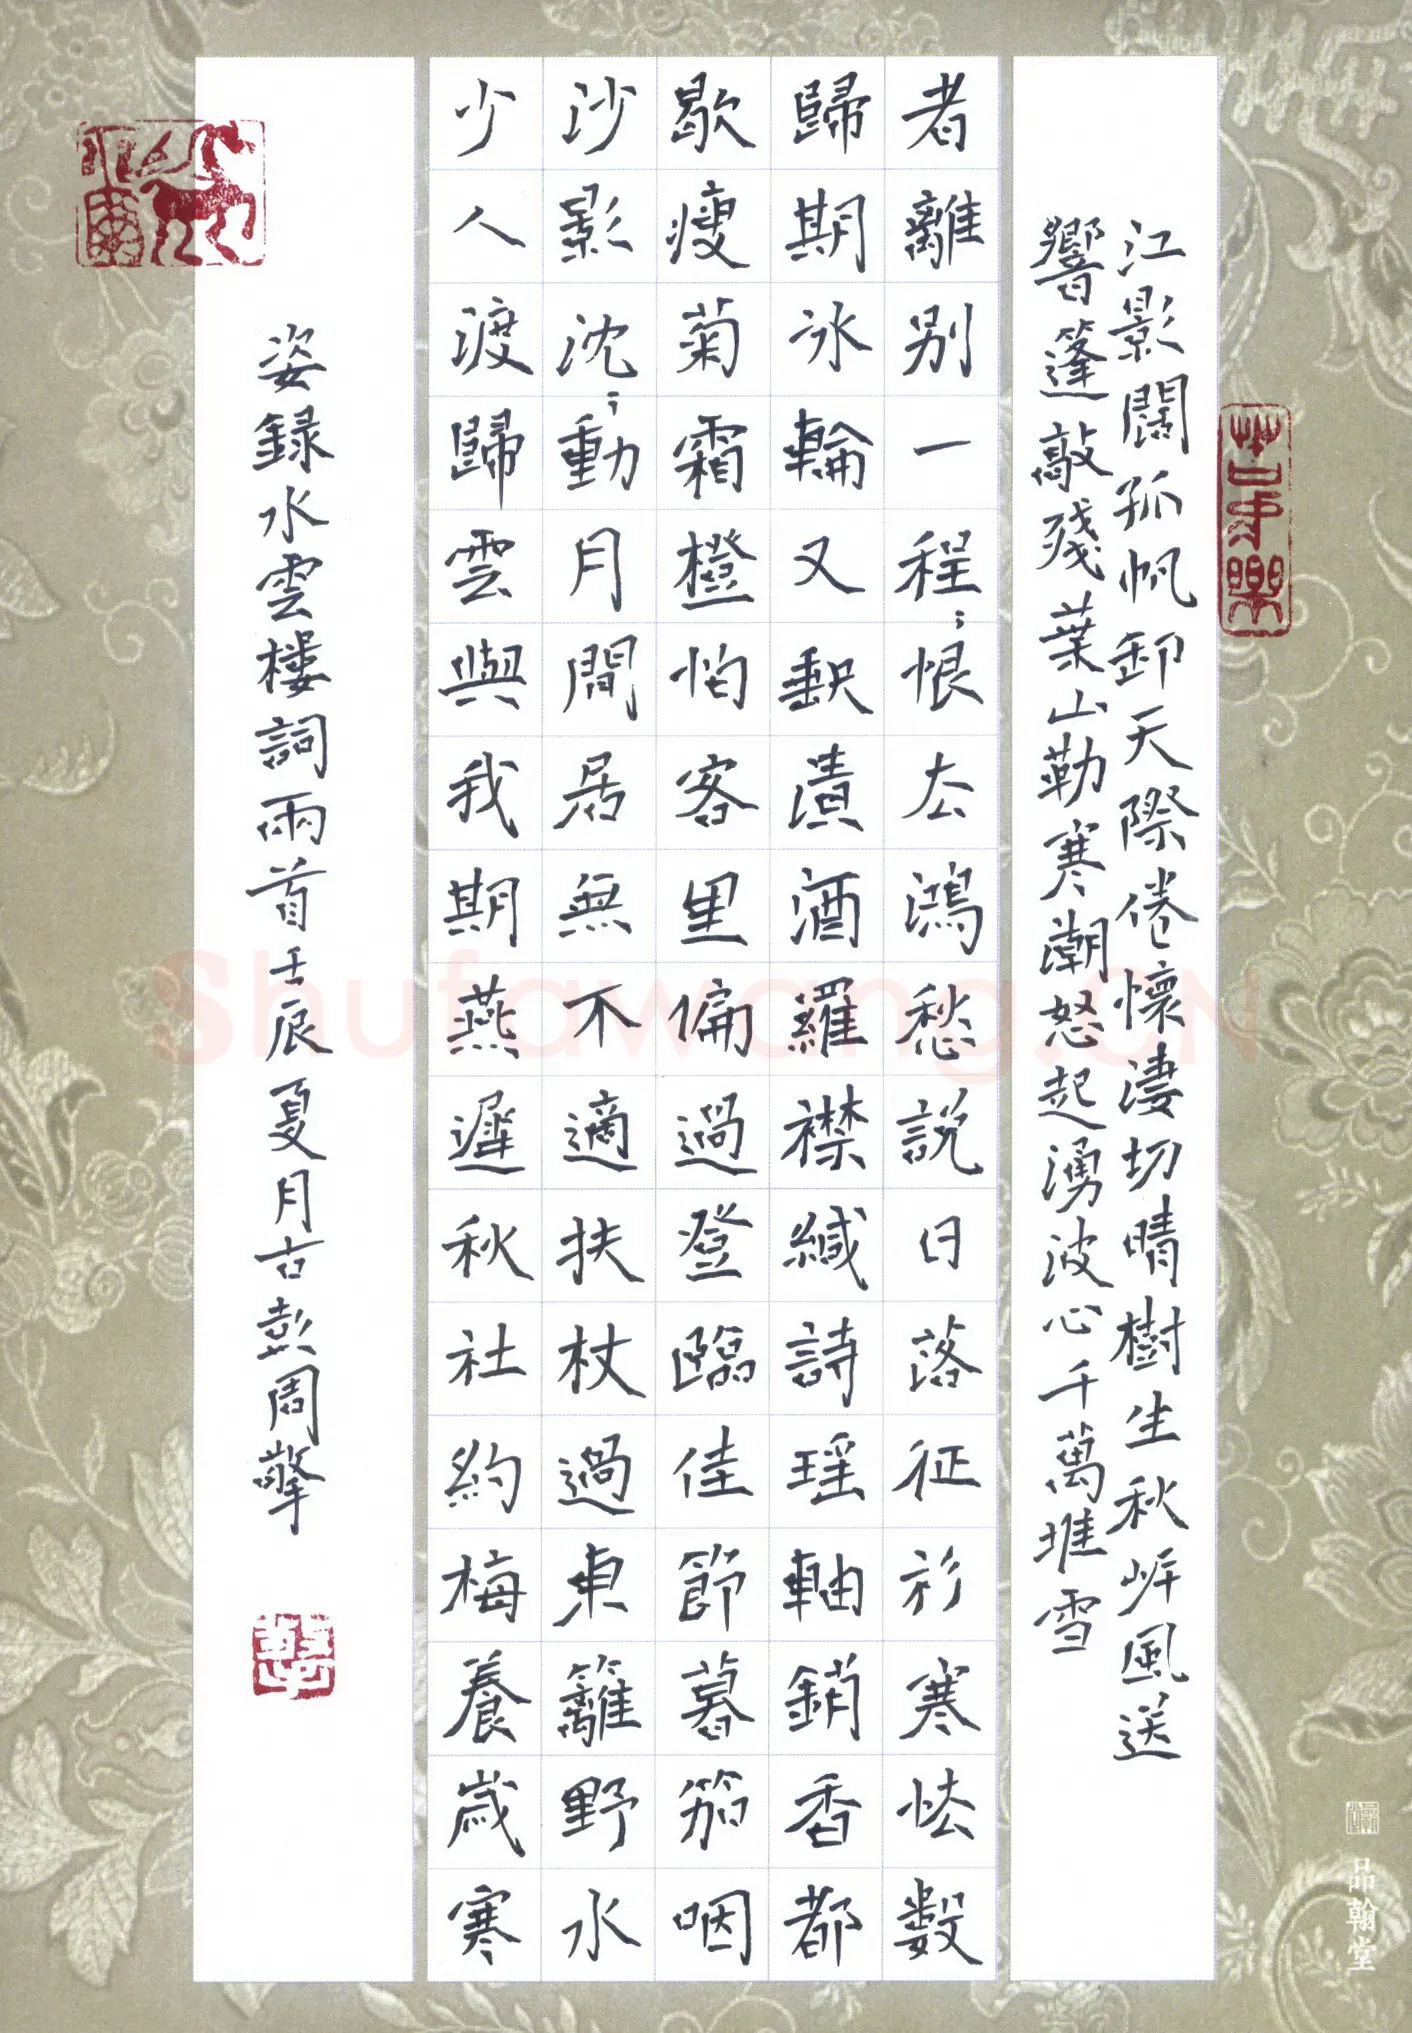 江影闊孤帆卸天際倦懷淒切晴樹生秋岸風送
響篷敲殘葉山勒寒潮怒起湧波心千萬堆雪
者離別一程〻恨去鴻愁說日落征衫寒怯數
歸期冰輪又缺漬酒羅襟緘詩瑶軸銷香都
歇瘦菊霜橙怕客里偏過登臨佳節暮笳咽
沙影沈〻動月間居無不適扶杖過東籬野水
少人渡歸雲與我期燕遲秋社約梅養歲寒
姿録水雲樓詞兩首壬辰夏月古彭周擎
品翰堂
Shufawang.CN